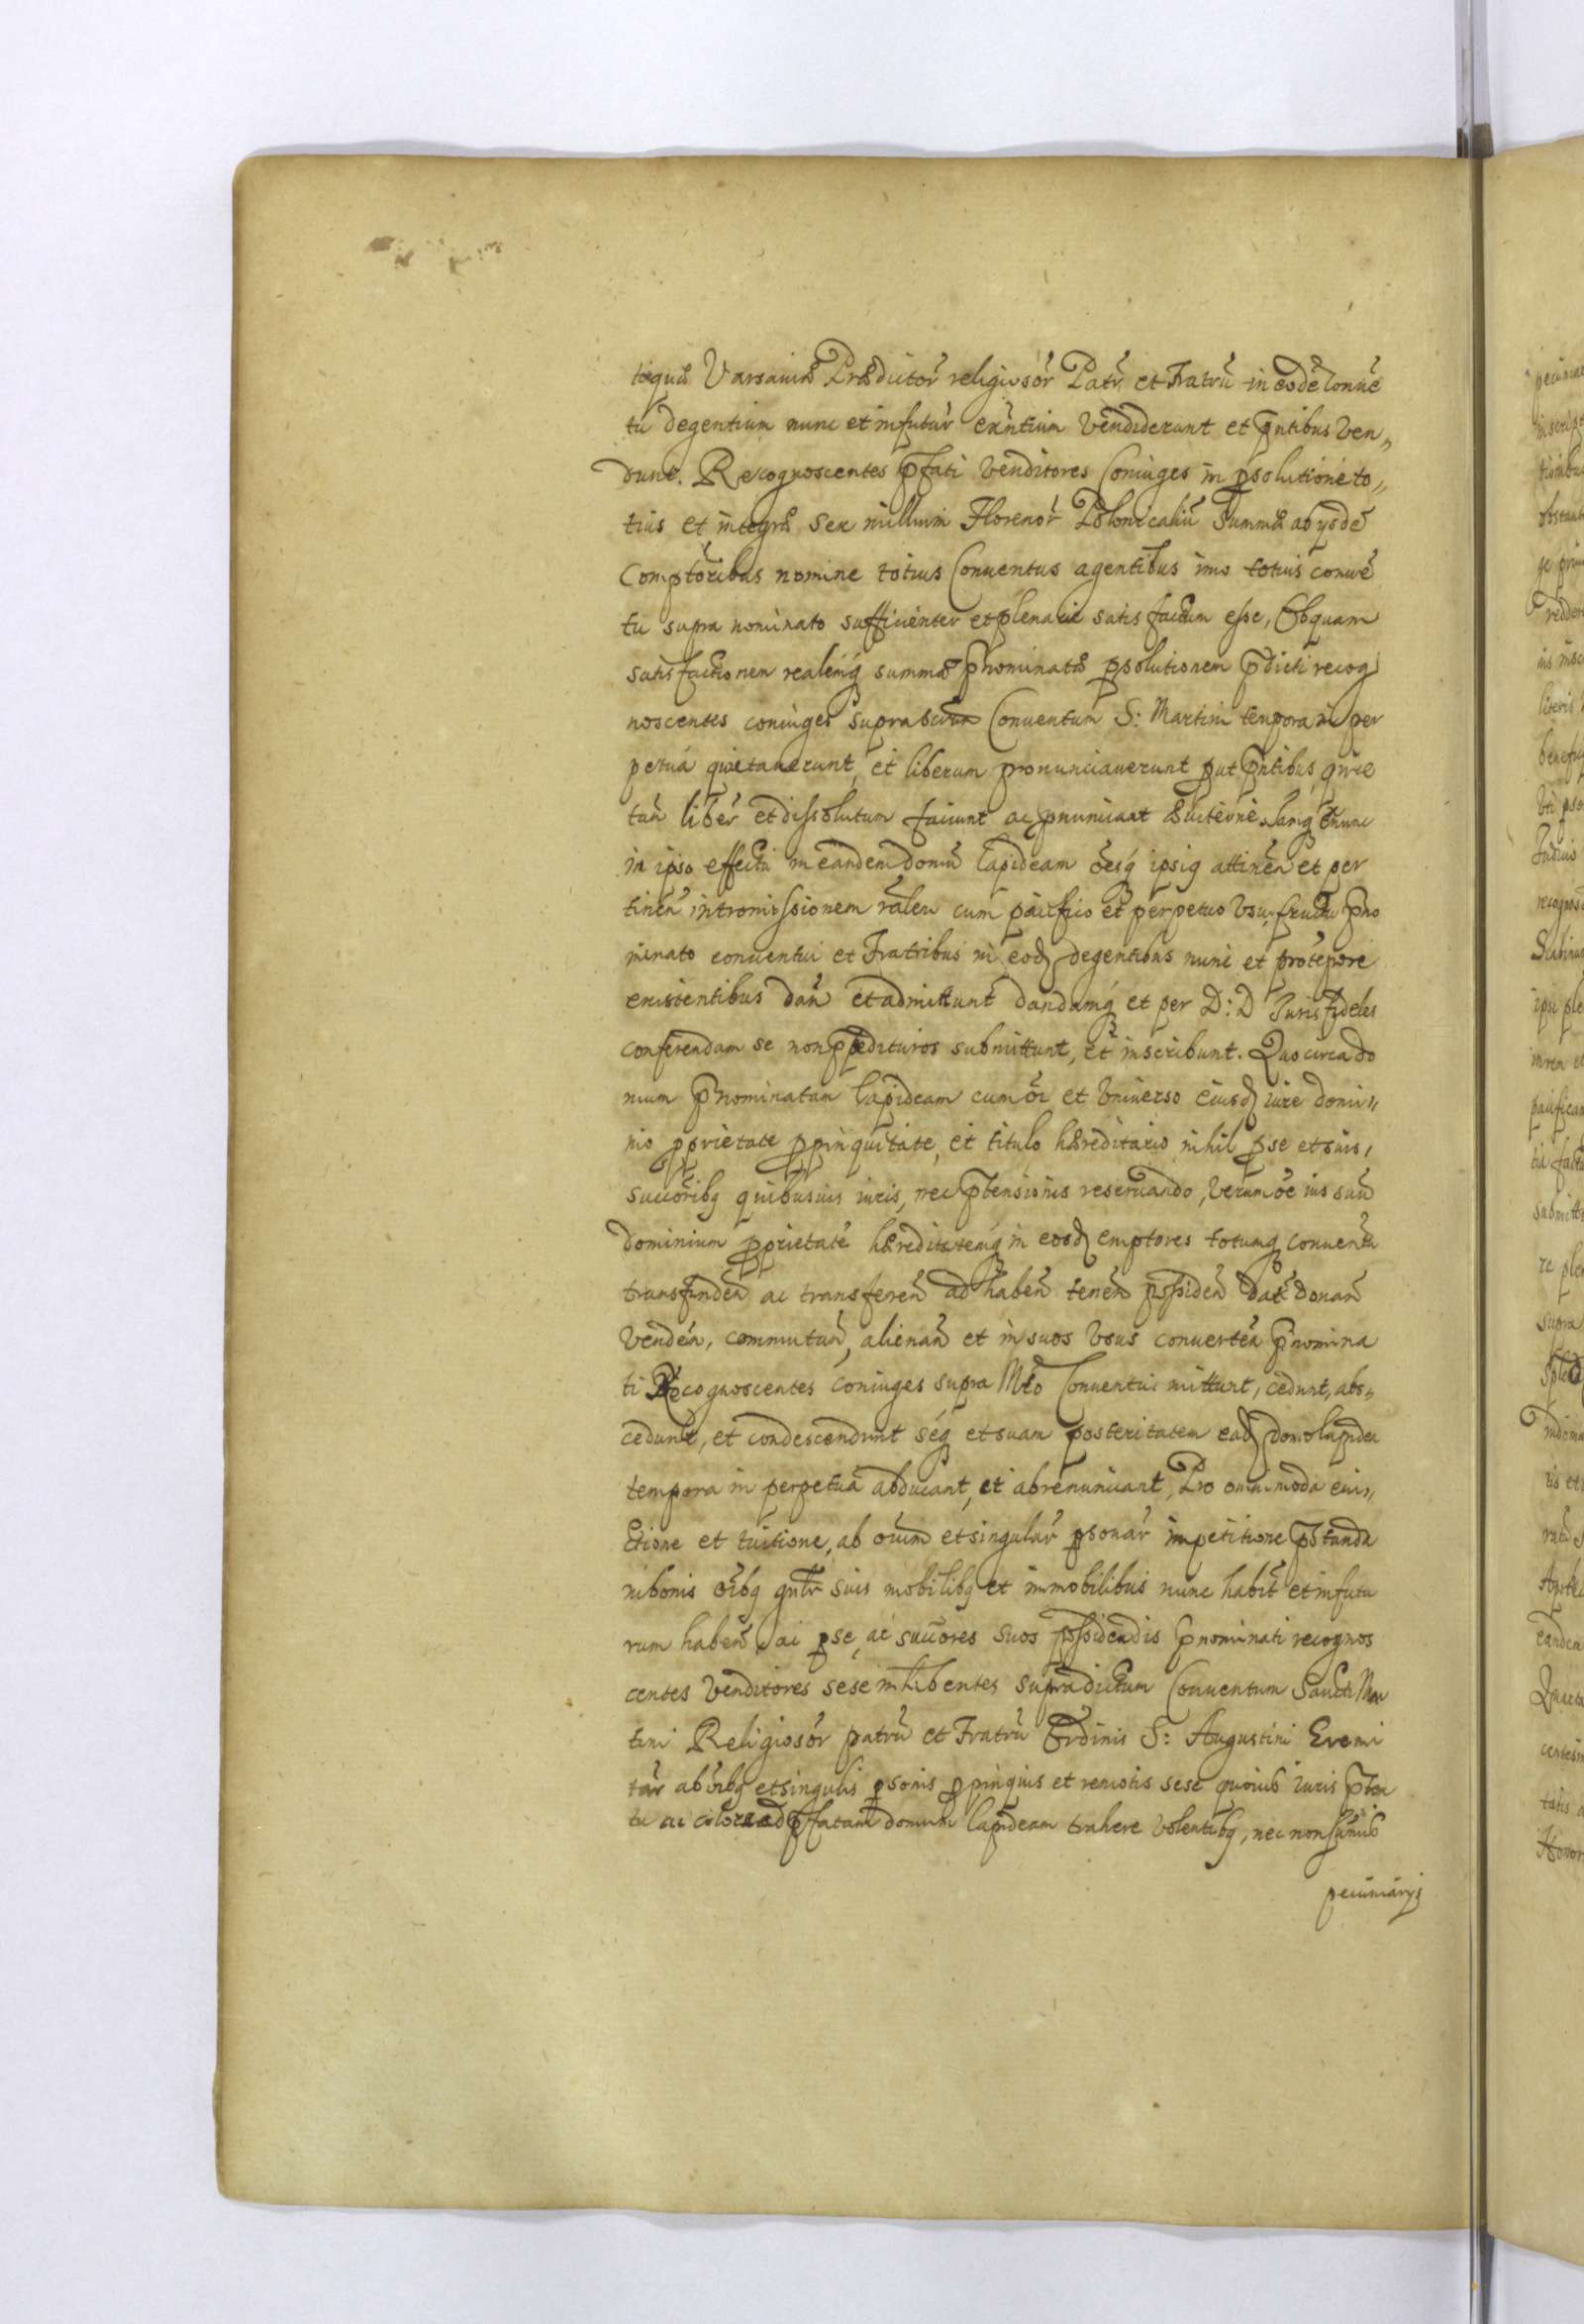 tiquæ Varsaviæ Prædictor̃ religiosor̃ Patrũ et Fratrũ in eodẽ Conuẽ
tu degentium nunc et infutur̃ exñtium Vendiderunt et p̃ntibus Ven„
dunt. Recognoscentes p̃fati Venditores Coniuges in psolutione to„
tius et integræ sex millium Florenor̃ Polonicaliũ Summæ ab ysdẽ
Comptoribus nomine totius Conuentus agentibus imo totius conuẽ
tu supra nominato sufficienter et plenarie satis factum esse, Obquam
satisfactionem realemq́ summæ p̃nominatæ psolutionem p̃dicti recog
noscentes coniuges suprascrm̃ Conuentum S: Martini tempora in per
petuá quietauerunt, et liberum pronunciauerunt put p̃ntibus quie
tum̃ liber̃ et dissolutum faciunt ac pnunciant
in ipso effectu in eandem domũ lapideam oẽsq́ ipsiq attineñ et per
tineñ intromissionem rãlem cum pacifico et perpetuo Vsu,fructu p̃no
minato conuentui et Fratribus in eod degentibus nunc et pro tẽpore
existentibus dañ et admittunt dandamq́ et per D:D Juris fideles
conferendam se non ppedituros submittunt, et inscribunt. Quocirca do
mum p̃nominatam lapideam cum oĩ et Vniuerso eiusd iure domi„
nio pprietate ppinquitate, et titulo hæreditario nihil pse et suis,
succoribq quibusuis iuris, nec p̃tensionis reseruando, Verum oẽ ius suũ
dominium pprietatẽ hæreditatemq́ in eosd emptores totumq́ conuentũ
transfundeñ ac transfereñ ad habeñ teneñ possideñ dañ donañ
Vendeñ, commutañ, alienañ et in suos Vsus conuerteñ p̃nomina
ti Recognoscentes coniuges supra Mt̃o Conuentui mittunt, cedunt, abs„
cedunt, et condescendunt seq́ et suam posteritatem ead domo lapidea
tempora in perpetua abdicant, et abrenunciant, Pro omnimoda eui„
ctione et tuitione, ab oiũm et singular̃ psonar̃ impetitione p̃standa
in bonis oĩbq gnl̃r suis mobilibq et immobilibus nunc habit̃ et infutu
rum habeñ, ac pse, ac succores suos possidendis p̃nominati recognos
centes Venditores sese inhibentes supradictum Conuentum Sancti Mar
tini Religiosor̃ patrũ et Fratrũ Ordinis S: Augustini Eremi
tar̃ ab oĩbq et singulis psonis ppinquis et remotis sese quouis iuris p̃tex
tu ac colore ad p̃fatam domum lapideam trahere Volentibq, nec non sum̃is
pecuniarys